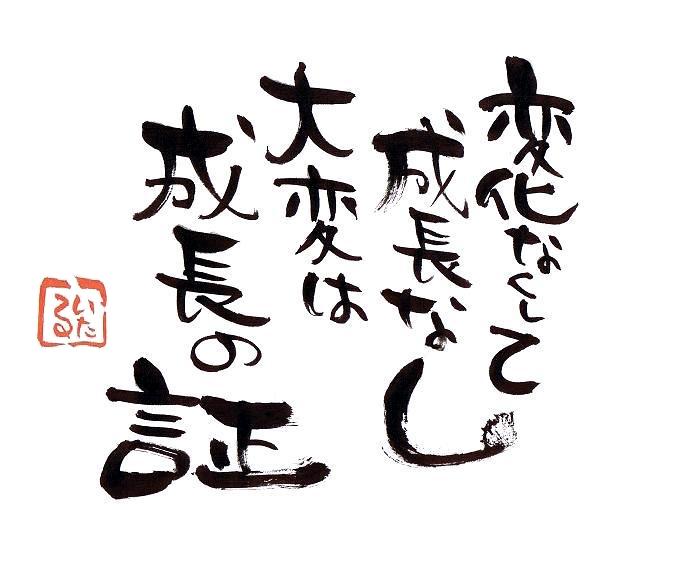 変化なくして
成長なし
大変は
成長の
証
いたる